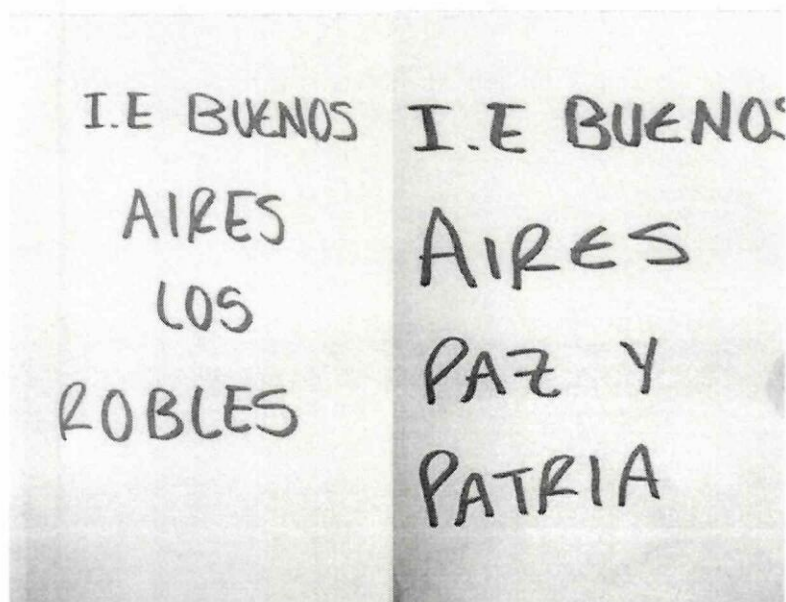 I.E BUENOS
AIRES
LOS
ROBLES
I.E BUENOS
AIRES
PAZ Y
PATRIA